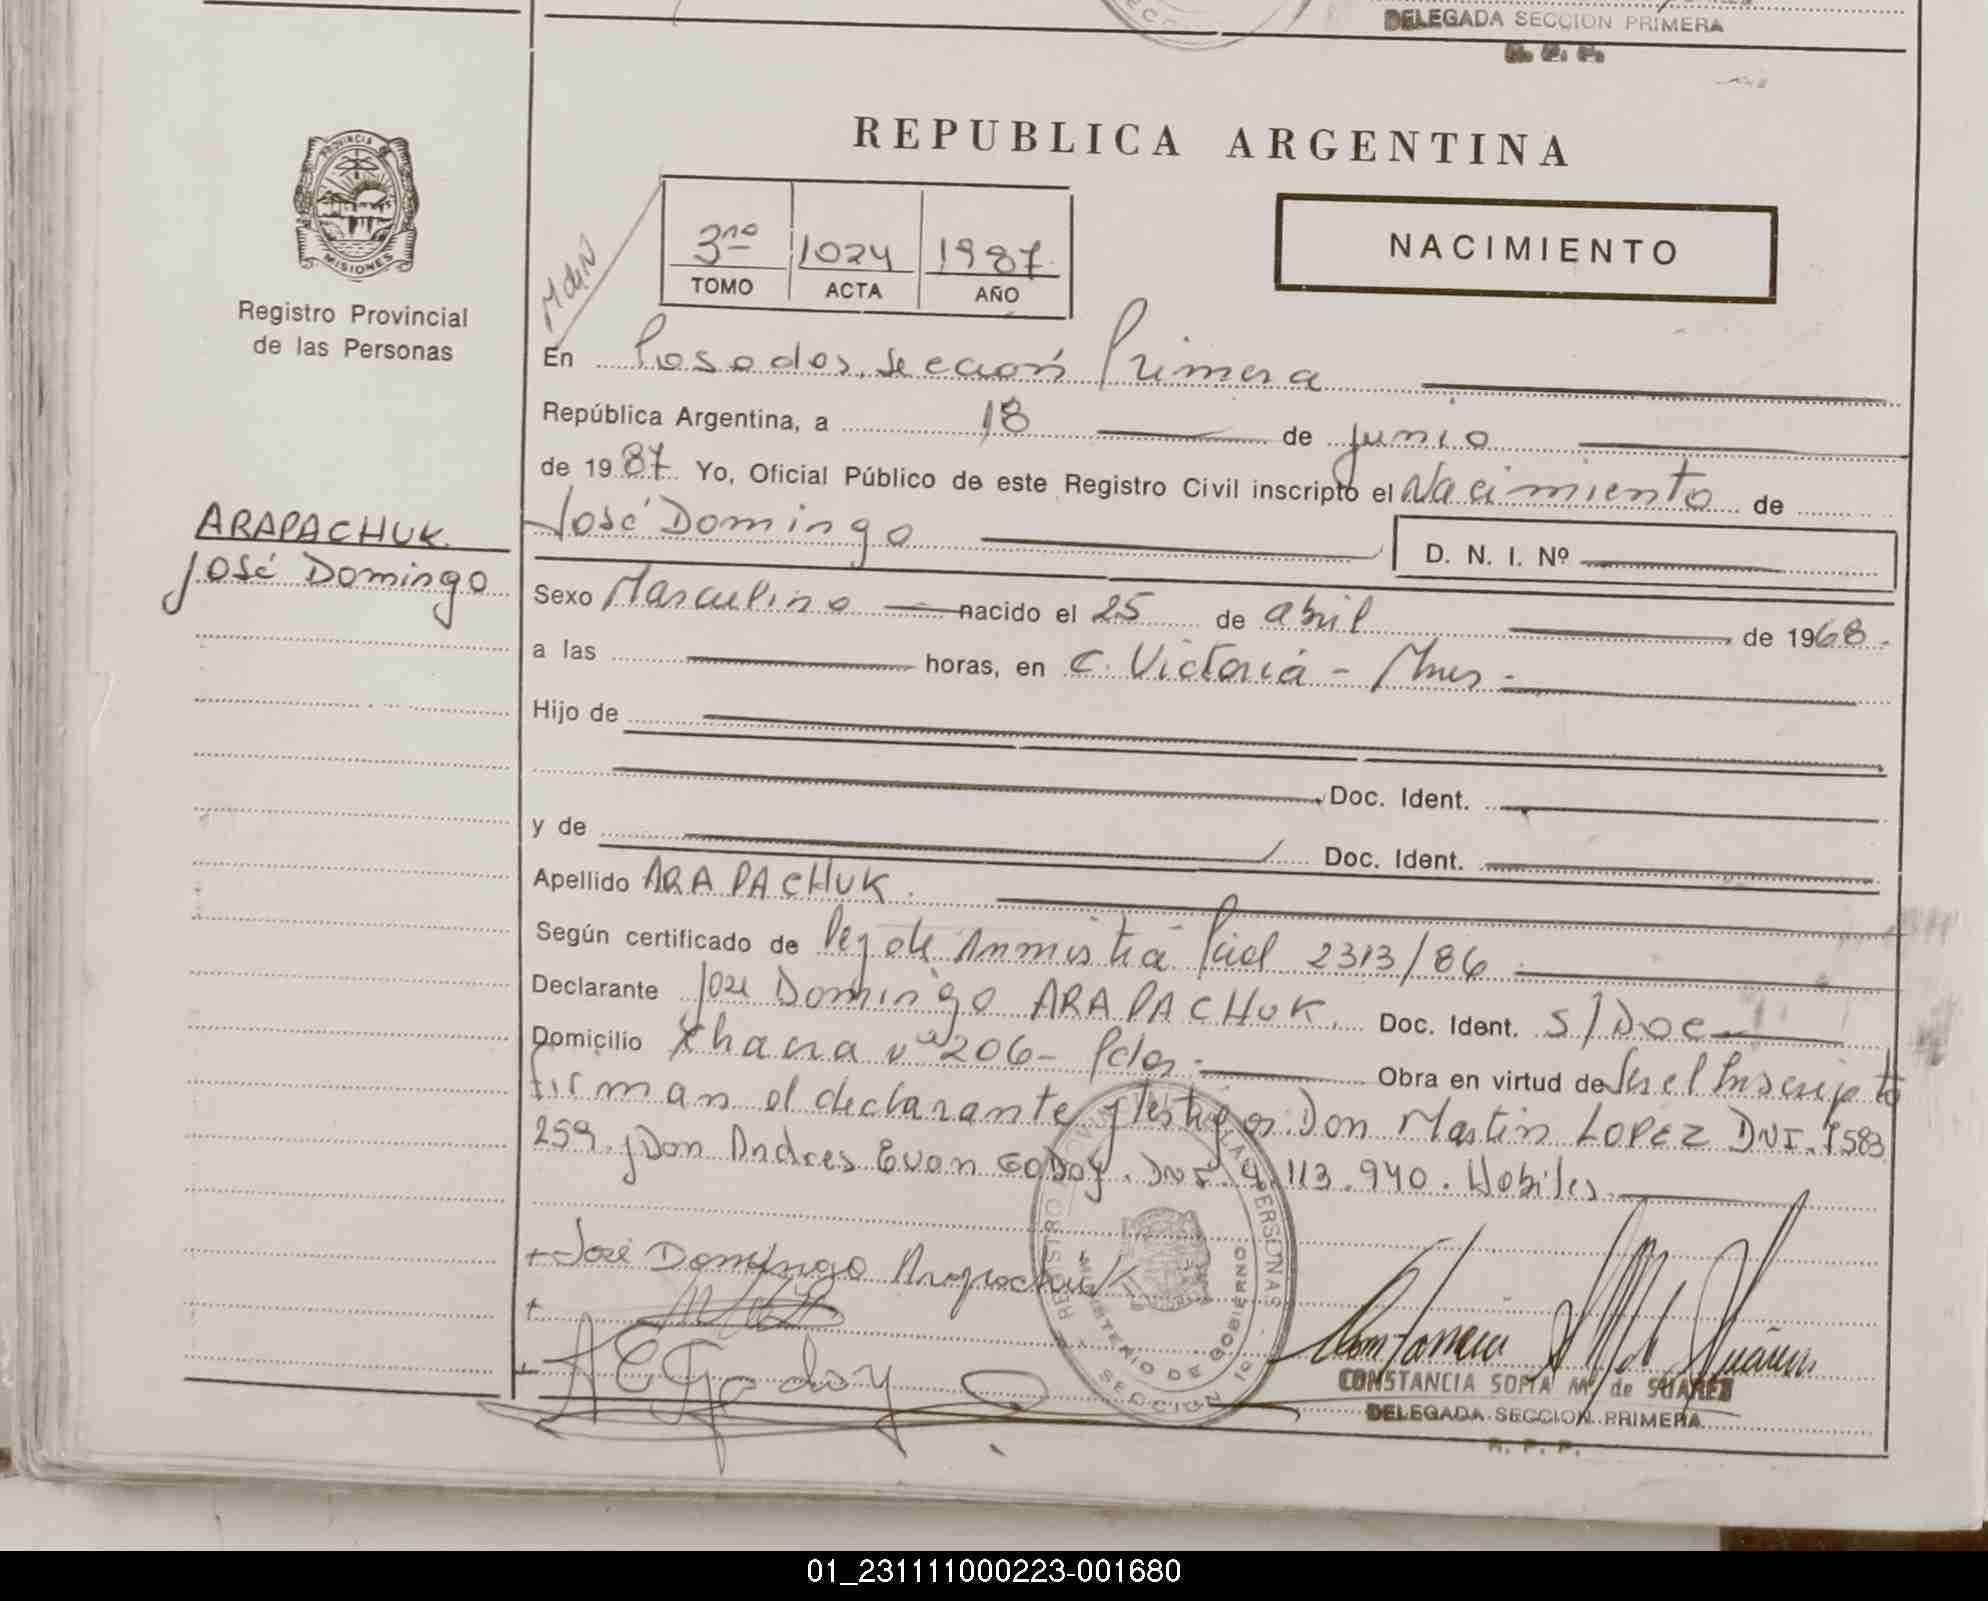 DELEGADA SECCION PRIMERA
R. P. P.
REPUBLICA ARGENTINA
PROVINCIA DE
MISIONES
Registro Provincial
de las Personas
M de N
3ro 1024 1987
TOMO ACTA AÑO
NACIMIENTO
En Posadas, Sección Primera
República Argentina, a 18 de junio
de 1987 Yo, Oficial Público de este Registro Civil inscripto el Nacimiento de
José Domingo D. N. I. Nº
ARAPACHUK
José Domingo
Sexo Masculino nacido el 25 de abril de 1968.
a las horas, en C. Victoria - Mnes -
Hijo de
Doc. Ident.
y de Doc. Ident.
Apellido ARAPACHUK.
Según certificado de Ley de Amnistia Pcial 2313/86
Declarante José Domingo ARAPACHUK. Doc. Ident. S/Doc
Domicilio Chacra nº 206 - Pdas - Obra en virtud de Ser el Inscripto
firman el declarante y testigos: Don Martin LOPEZ DNI. 7583
259. y Don Andres Evan GODOY. DNI. 4.113.940. Habiles.
+ José Domingo Arapachuk
+
+ A E Godoy
REGISTRO PROVINCIAL DE LAS PERSONAS
MINISTERIO DE GOBIERNO
SECCION 1º
CONSTANCIA SOFIA M. de SUAREZ
DELEGADA SECCION PRIMERA
R. P. P.
01_231111000223-001680